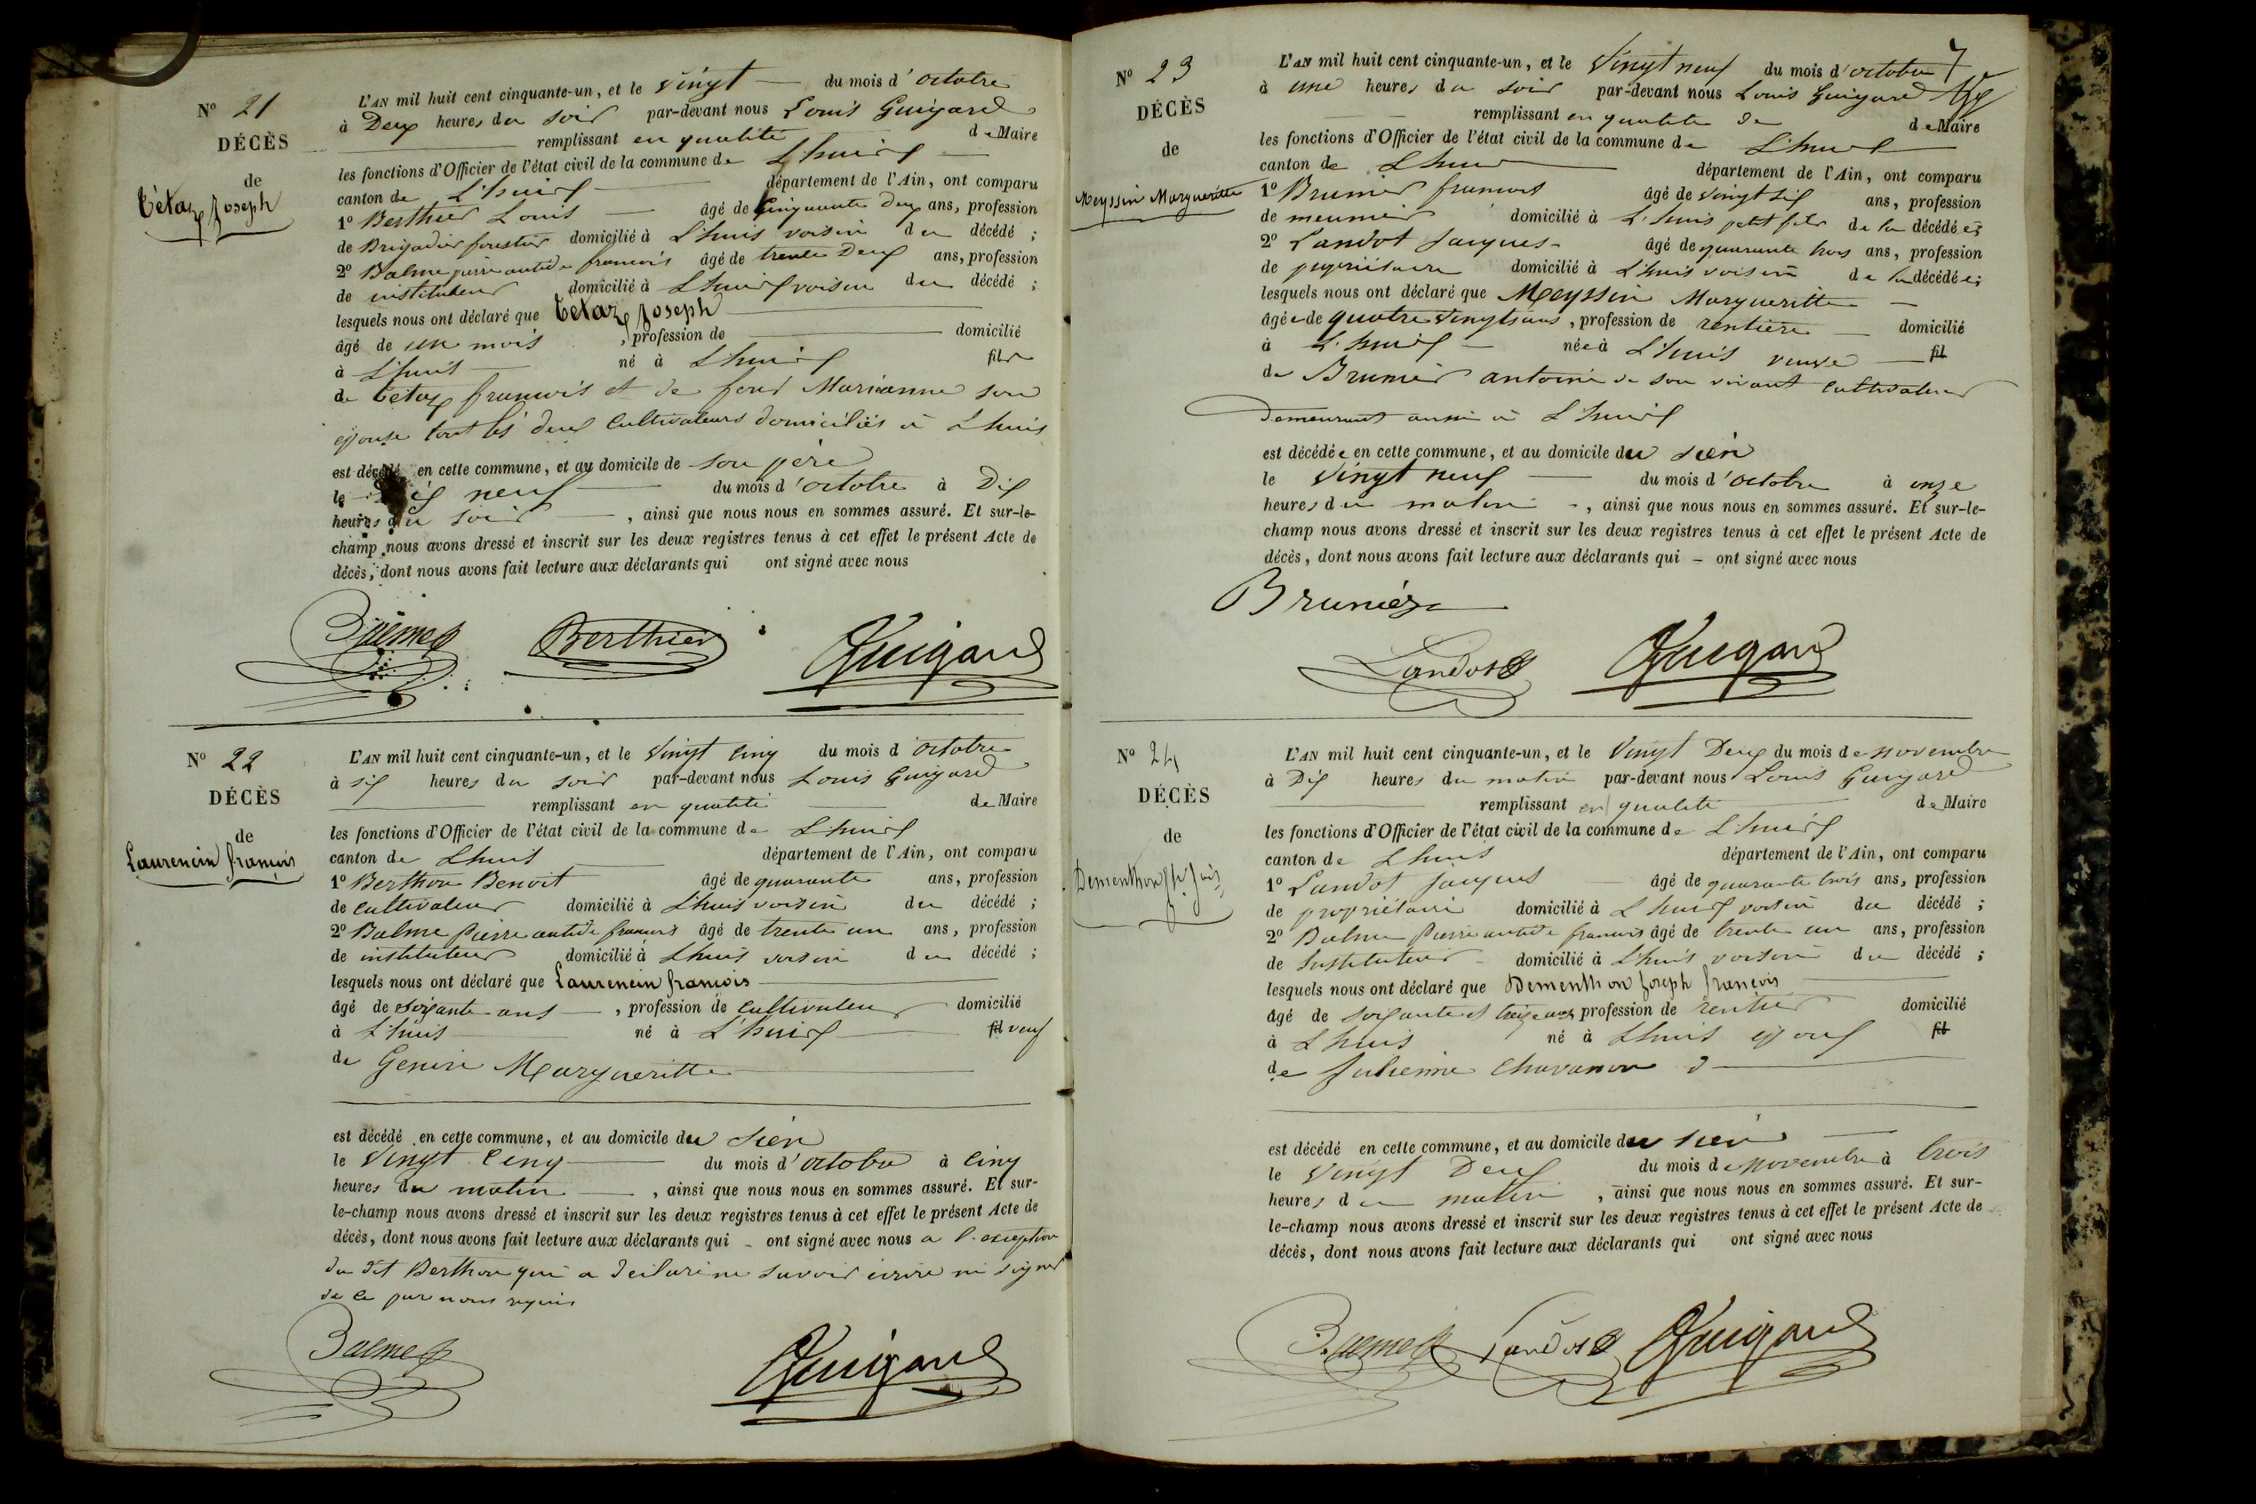 N° 21
DÉCÈS
de
Tétaz Joseph
L'AN mil huit cent cinquante-un, et le vingt du mois d'octobre
à Deux heures du soir par-devant nous Louis Guigard
remplissant en qualité de Maire
les fonctions d'Officier de l'état civil de la commune de Lhuis
canton de Lhuis département de l'Ain, ont comparu
1° Berthier Louis âgé de Cinquante Deux ans, profession
de Brigadier forestier domicilié à Lhuis voisin du décédé ;
2° Balme pierre antide francois âgé de trente Deux ans, profession
de instituteur domicilié à Lhuis voisin du décédé ;
lesquels nous ont déclaré que Tétaz Joseph
âgé de un mois, profession de domicilié
à Lhuis né à Lhuis fils
de Tétaz francois et de Marianne son
épouse tout les deux Cultivateurs domiciliés à Lhuis
est décédé en cette commune, et au domicile de son père
le Dix neuf du mois d'octobre à Dix
heures du soir, ainsi que nous nous en sommes assuré. Et sur-le-
champ nous avons dressé et inscrit sur les deux registres tenus à cet effet le présent Acte de
décès, dont nous avons fait lecture aux déclarants qui ont signé avec nous
Balme Berthier Guigard
N° 22
DÉCÈS
de
Laurencin françois
L'AN mil huit cent cinquante-un, et le vingt cinq du mois d'octobre
à six heures du soir par-devant nous Louis Guigard
remplissant en qualité de Maire
les fonctions d'Officier de l'état civil de la commune de Lhuis
canton de Lhuis département de l'Ain, ont comparu
1° Berthon Benoit âgé de quarante ans, profession
de cultivateur domicilié à Lhuis voisin du décédé ;
2° Balme pierre antide francois âgé de trente un ans, profession
de instituteur domicilié à Lhuis voisin du décédé ;
lesquels nous ont déclaré que Laurencin francois
âgé de soixante ans, profession de cultivateur domicilié
à Lhuis né à Lhuis fil veuf
de Margueritte
est décédé en cette commune, et au domicile du sien
le vingt cinq du mois d'octobre à cinq
heures du matin, ainsi que nous nous en sommes assuré. Et sur-
le-champ nous avons dressé et inscrit sur les deux registres tenus à cet effet le présent Acte de
décès, dont nous avons fait lecture aux déclarants qui ont signé avec nous a l'exception
du dit Berthon qui a déclaré ne savoir écrire ni signer
de ce par nous requis
Balme Guigard
7
N° 23
DÉCÈS
de
Meyssin Margueritte
L'AN mil huit cent cinquante-un, et le vingt neuf du mois d'octobre
à une heures du soir par-devant nous Louis Guigard
remplissant en qualité de de Maire
les fonctions d'Officier de l'état civil de la commune de Lhuis
canton de Lhuis département de l'Ain, ont comparu
1° Brunier francois âgé de vingt six ans, profession
de meunier domicilié à Lhuis petit fils de la décédée ;
2° Landot Jacques âgé de quarante trois ans, profession
de propriétaire domicilié à Lhuis voisin de la décédée ;
lesquels nous ont déclaré que Meyssin Margueritte
âgée de quatre vingts ans, profession de rentière domicilié
à Lhuis née à Lhuis veuve fil
de Brunier antoine de son vivant cultivateur
demeurant aussi à Lhuis
est décédée en cette commune, et au domicile du sien
le vingt neuf du mois d'octobre à onze
heures du matin, ainsi que nous nous en sommes assuré. Et sur-le-
champ nous avons dressé et inscrit sur les deux registres tenus à cet effet le présent Acte de
décès, dont nous avons fait lecture aux déclarants qui ont signé avec nous
Brunier
Landot Guigard
N° 24
DÉCÈS
de
Dementhon Jh. fçois
L'AN mil huit cent cinquante-un, et le vingt Deux du mois de novembre
à Dix heures du matin par-devant nous Louis Guigard
remplissant en qualité de Maire
les fonctions d'Officier de l'état civil de la commune de Lhuis
canton de Lhuis département de l'Ain, ont comparu
1° Landot Jacques âgé de quarante trois ans, profession
de propriétaire domicilié à Lhuis voisin du décédé ;
2° Balme pierre antide francois âgé de trente un ans, profession
de Instituteur domicilié à Lhuis voisin du décédé ;
lesquels nous ont déclaré que Dementhon Joseph françois
âgé de soixante et treize ans, profession de rentier domicilié
à Lhuis né à Lhuis époux fil
de Julienne Chavanon
est décédé en cette commune, et au domicile du sien
le vingt Deux du mois de novembre à trois
heures du matin, ainsi que nous nous en sommes assuré. Et sur-
le-champ nous avons dressé et inscrit sur les deux registres tenus à cet effet le présent Acte de
décès, dont nous avons fait lecture aux déclarants qui ont signé avec nous
Balme Landot Guigard